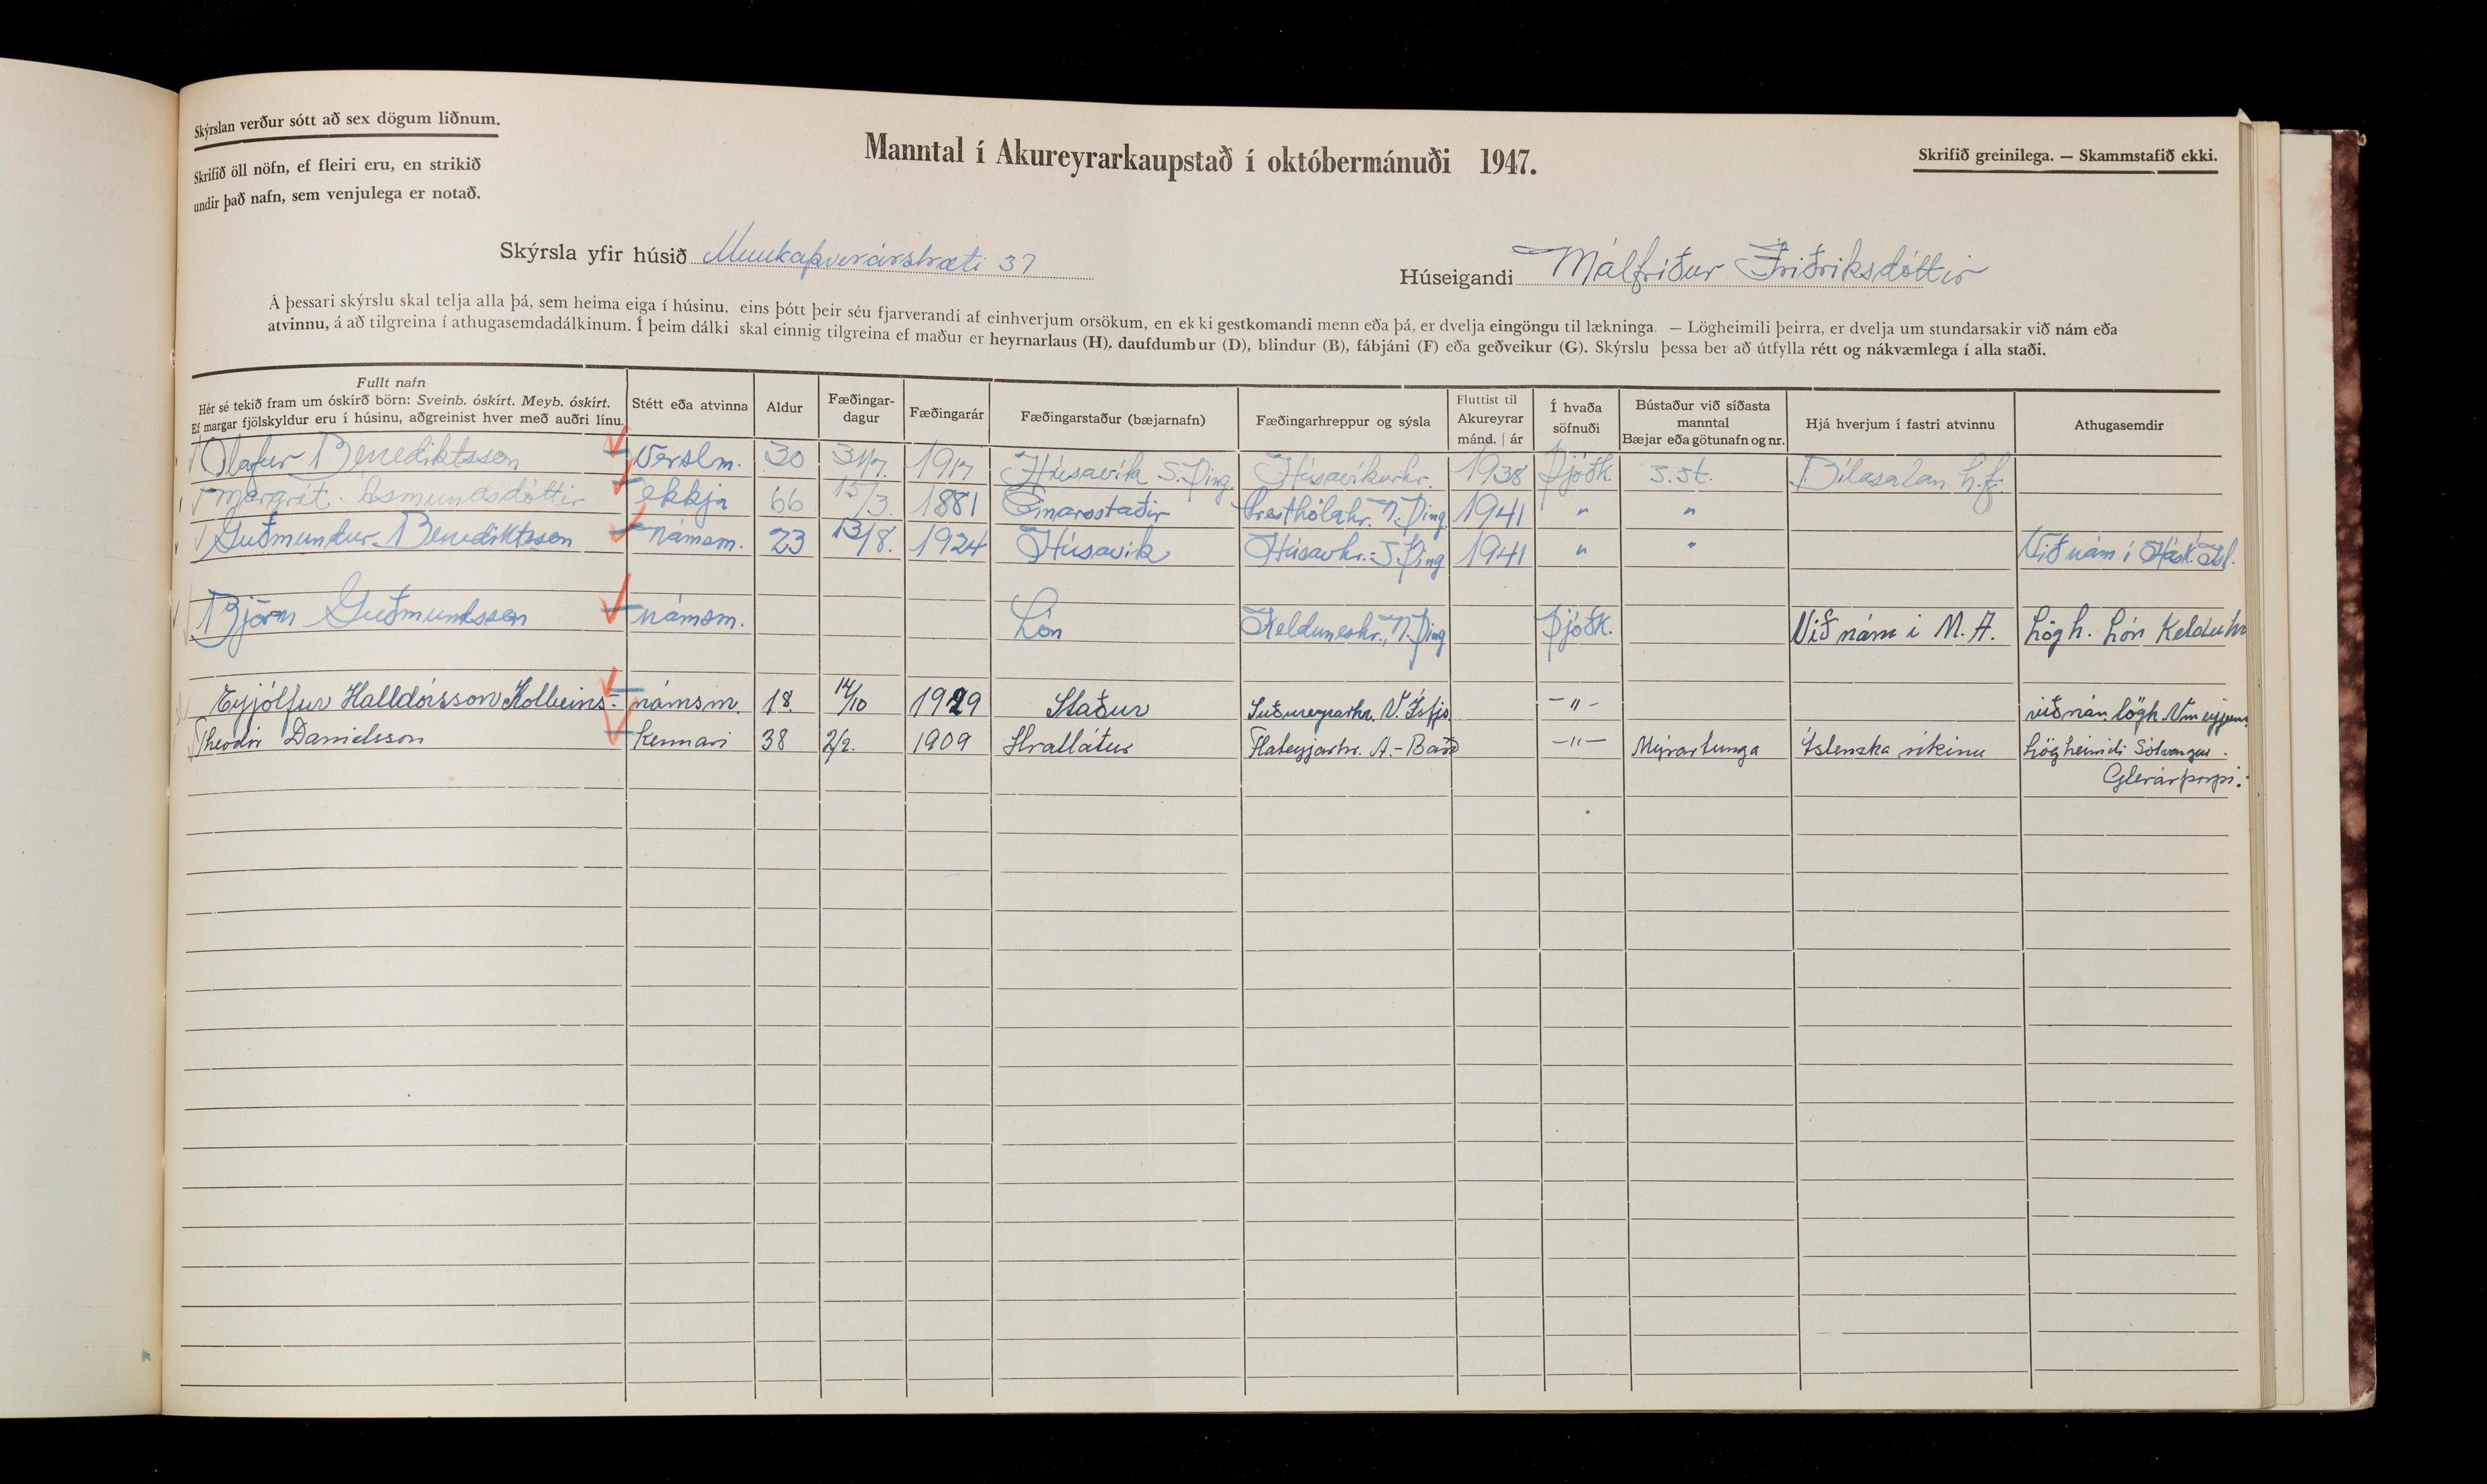 Skýrslan verður sótt að sex dögum liðnum.
Skrifið öll nöfn, ef fleiri eru, en strikið
undir það nafn, sem venjulega er notað.
Manntal í Akureyrarkaupstað í októbermánuði 1947.
Skrifið greinilega. — Skammstafið ekki.
Skýrsla yfir húsið Munkaþverárstræti 37
Húseigandi Málfríður Friðriksdóttir
Á þessari skýrslu skal telja alla þá, sem heima eiga í húsinu, eins þótt þeir séu fjarverandi af einhverjum orsökum, en ekki gestkomandi menn eða þá, er dvelja eingöngu til lækninga. — Lögheimili þeirra, er dvelja um stundarsakir við nám eða
atvinnu, á að tilgreina í athugasemdadálkinum. Í þeim dálki skal einnig tilgreina ef maður er heyrnarlaus (H), daufdumbur (D), blindur (B), fábjáni (F) eða geðveikur (G). Skýrslu þessa ber að útfylla rétt og nákvæmlega í alla staði.
Fullt nafn
Hér sé tekið fram um óskírð börn: Sveinb. óskírt. Meyb. óskírt.
Ef margar fjölskyldur eru í húsinu, aðgreinist hver með auðri línu.
Stétt eða atvinna
Aldur
Fæðingar-
dagur
Fæðingarár
Fæðingarstaður (bæjarnafn)
Fæðingarhreppur og sýsla
Fluttist til
Akureyrar
mánd. | ár
Í hvaða
söfnuði
Bústaður við síðasta
manntal
Bæjar eða götunafn og nr.
Hjá hverjum í fastri atvinnu
Athugasemdir
Ólafur Benediktsson Verslm. 30 31/7. 1917 Húsavík S.Þing. Húsavíkurhr. 1938 Þjóðk. S.st. Bílasalan h.f.
Margrét Ásmundsdóttir ekkja 66 15/3. 1881 Einarsstaðir Presthólahr. N.Þing 1941 " "
Guðmundur Benediktsson námsm. 23 13/8. 1924 Húsavík Húsavhr. S.Þing 1941 " " Við nám í Hásk. Ísl.
Björn Guðmundsson námsm. Lón Kelduneshr. N.Þing Þjóðk. Við nám í M.A. Lögh. Lón Kelduhv
Eyjólfur Halldórsson Kolbeins- námsm. 18. 14/10 1929 Staður Suðureyrarhr. V. Ísfjs -"- við nám lögh. Vm eyjum
Theodór Daníelsson Kennari 38 2/2. 1909 Hvallátur Flateyjarhr. A.-Barð -"- Mýrartunga Íslenska ríkinu Lögheimili Sólvangur.
Glerárþorpi.